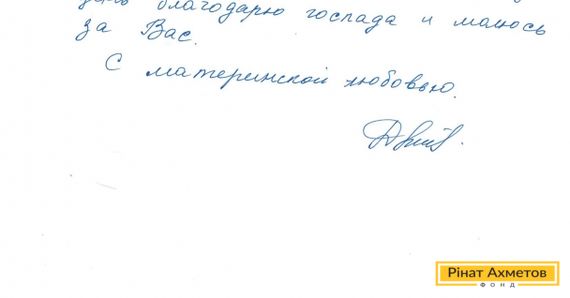 благодарю господа и малюсь
за Вас.
С материнской любовью.
Рінат Ахметов
ФОНД